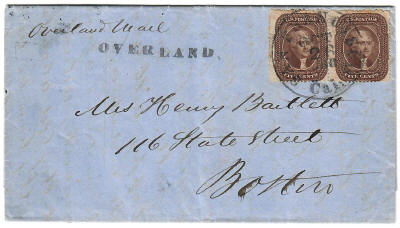 Overland Mail
OVERLAND
U.S. POSTAGE U.S. POSTAGE
FIVE CENTS FIVE CENTS
Cal
Mrs Henry Bartlett
116 State Street
Boston